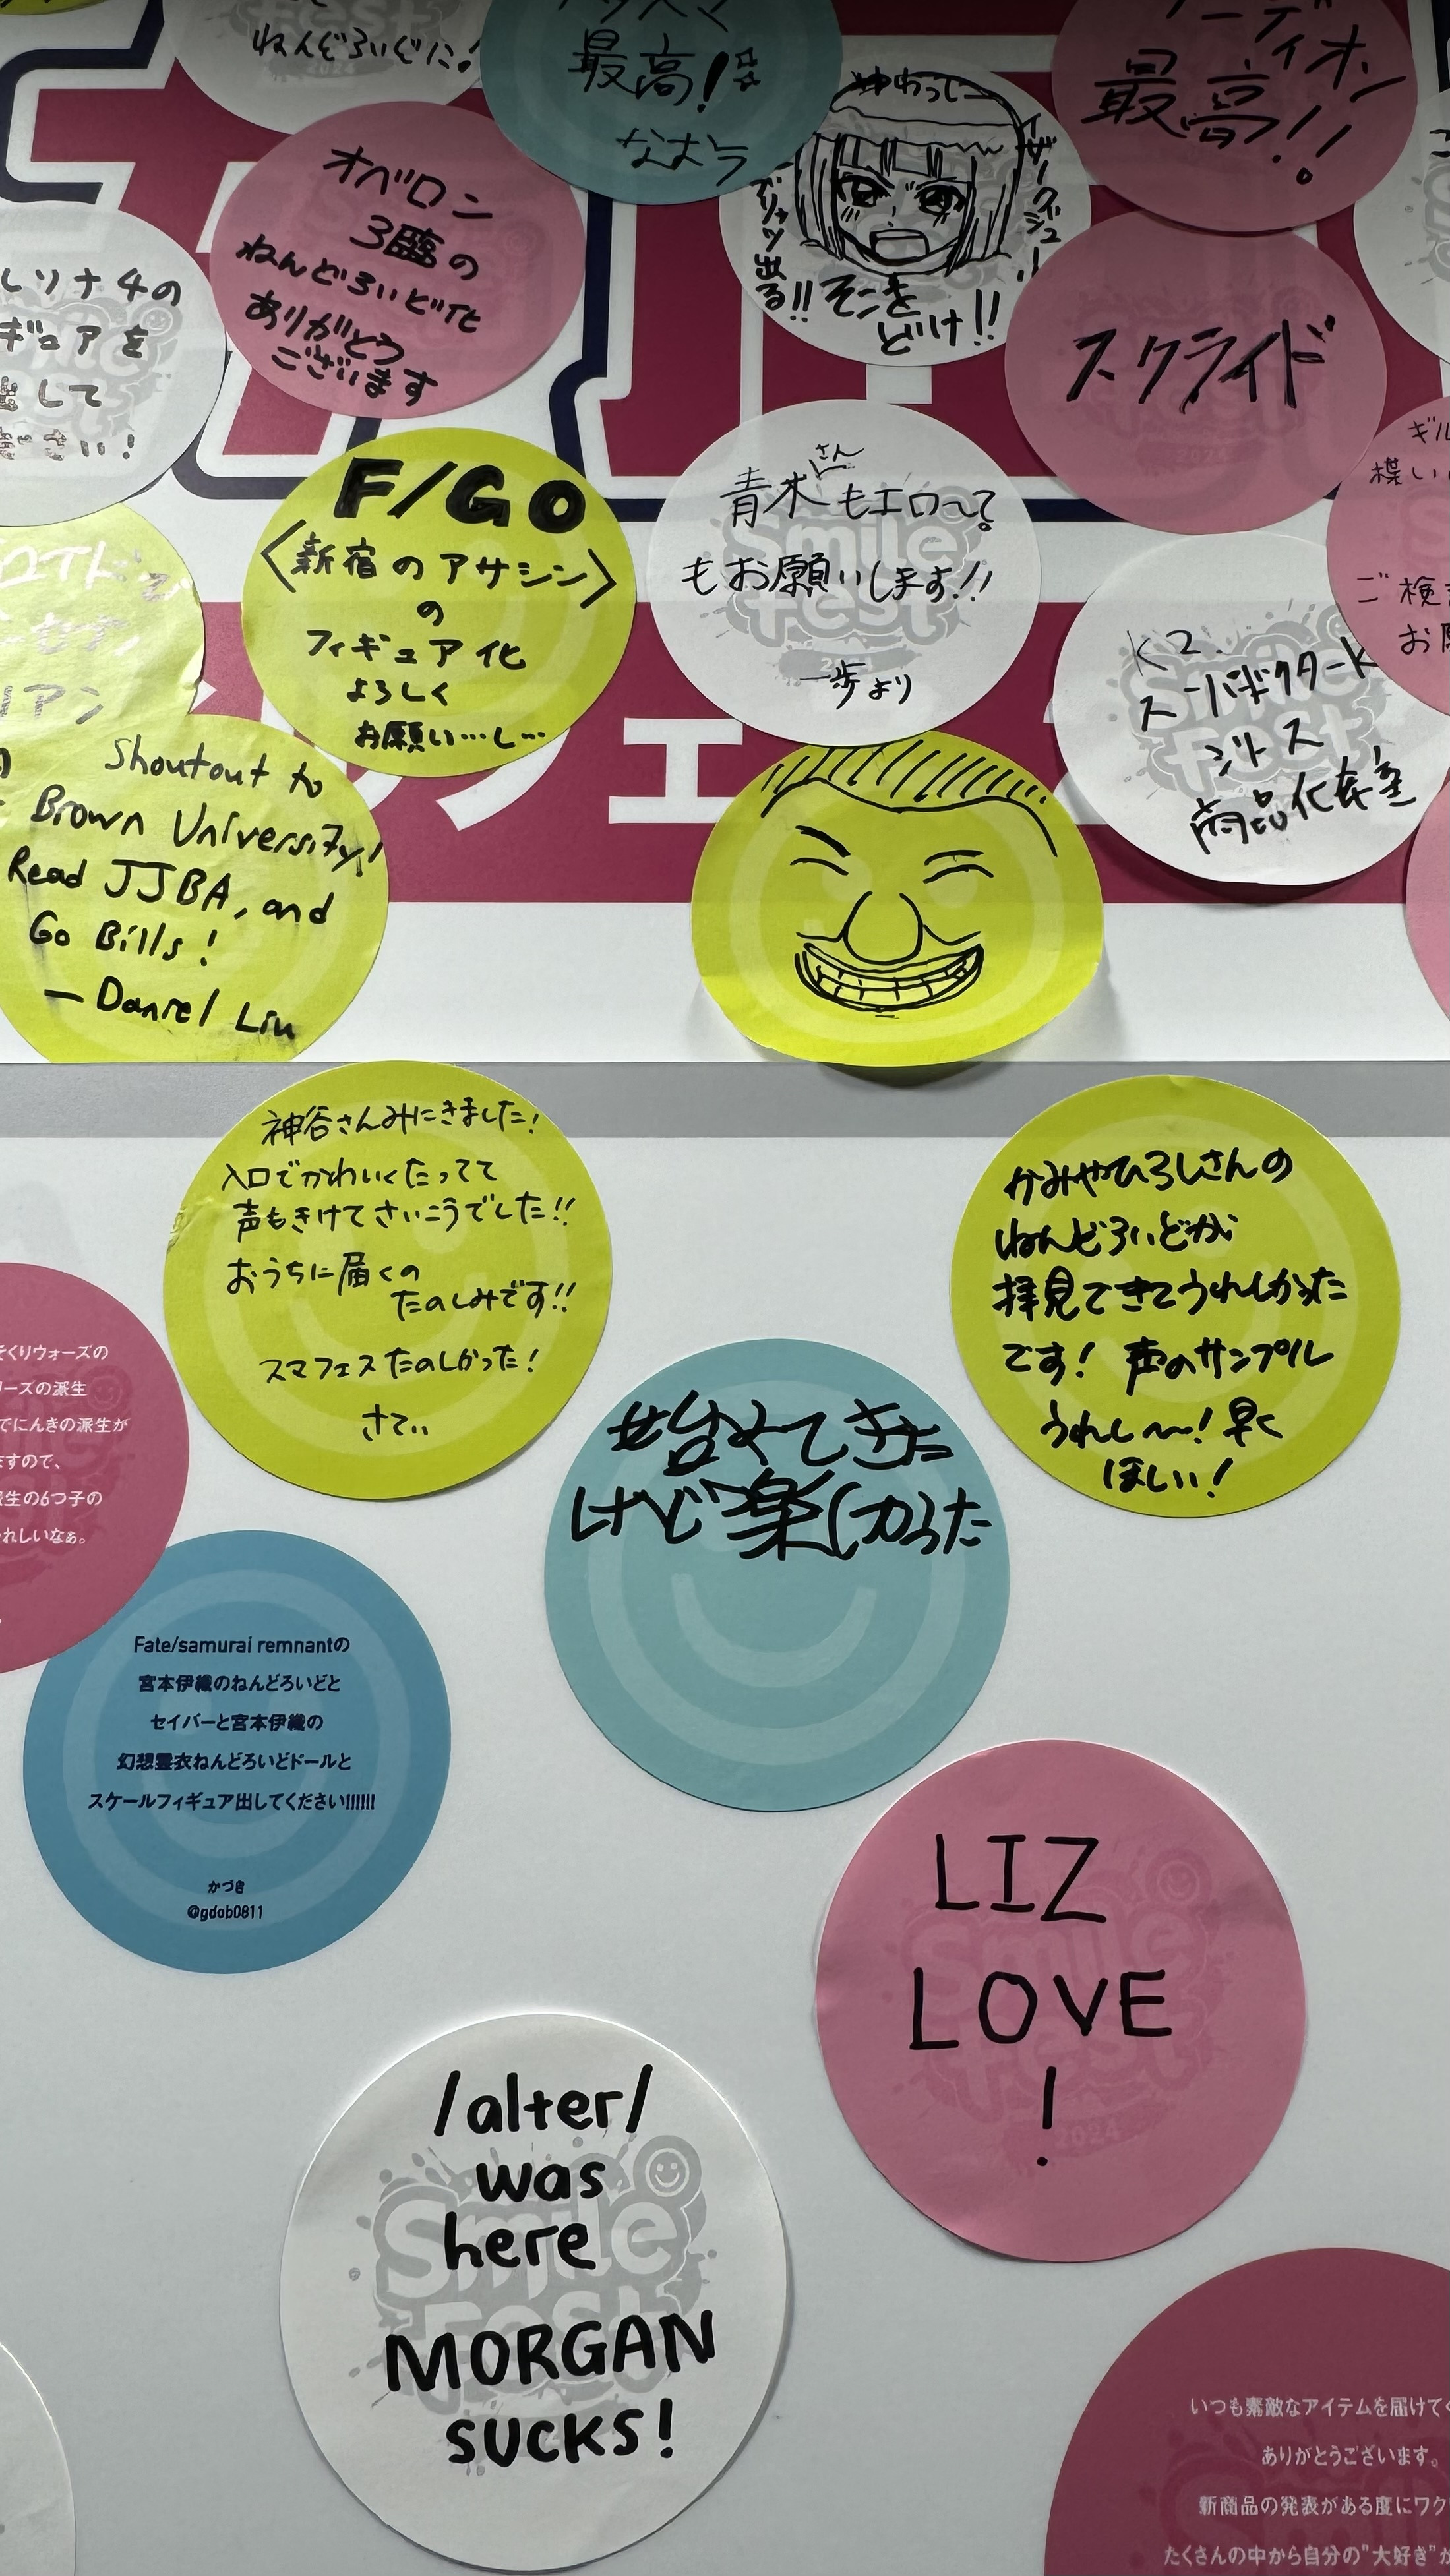 ねんどろいどに!
最高!
なおら
最高!!
オベロン
3臨の
ねんどろいど化
ありがとう
ございます
ゆわっしー
そこを
どけ!!
スクライド
ルソナ4の
ギュアを
出して
ださい!
F/GO
〈新宿のアサシン〉
の
フィギュア化
よろしく
お願い…し…
青木さんもエロ〜て
もお願いします!!
一歩より
Smile
Fest
K2.
商品化希望
ご検
お願
Shoutout to
Brown University!
Read JJBA, and
Go Bills!
— Daniel Liu
神谷さんみにきました!
入口でかわいくたってて
声もきけてさいこうでした!!
おうちに届くの
たのしみです!!
スマフェスたのしかった!
さてぃ
かみやひろしさんの
ねんどろいどが
拝見できてうれしかった
です! 声のサンプル
うれし〜〜! 早く
ほしい!
始めてきた
けど楽しかった
そくりウォーズの
リーズの派生
でにんきの派生が
ますので、
派生の6つ子の
れしいなぁ。
Fate/samurai remnantの
宮本伊織のねんどろいどと
セイバーと宮本伊織の
幻想霊衣ねんどろいどドールと
スケールフィギュア出してください!!!!!!
かづき
@gdob0811
LIZ
LOVE
!
/alter/
was
here
MORGAN
SUCKS!
いつも素敵なアイテムを届けてく
ありがとうございます。
新商品の発表がある度にワク
たくさんの中から自分の"大好き"が